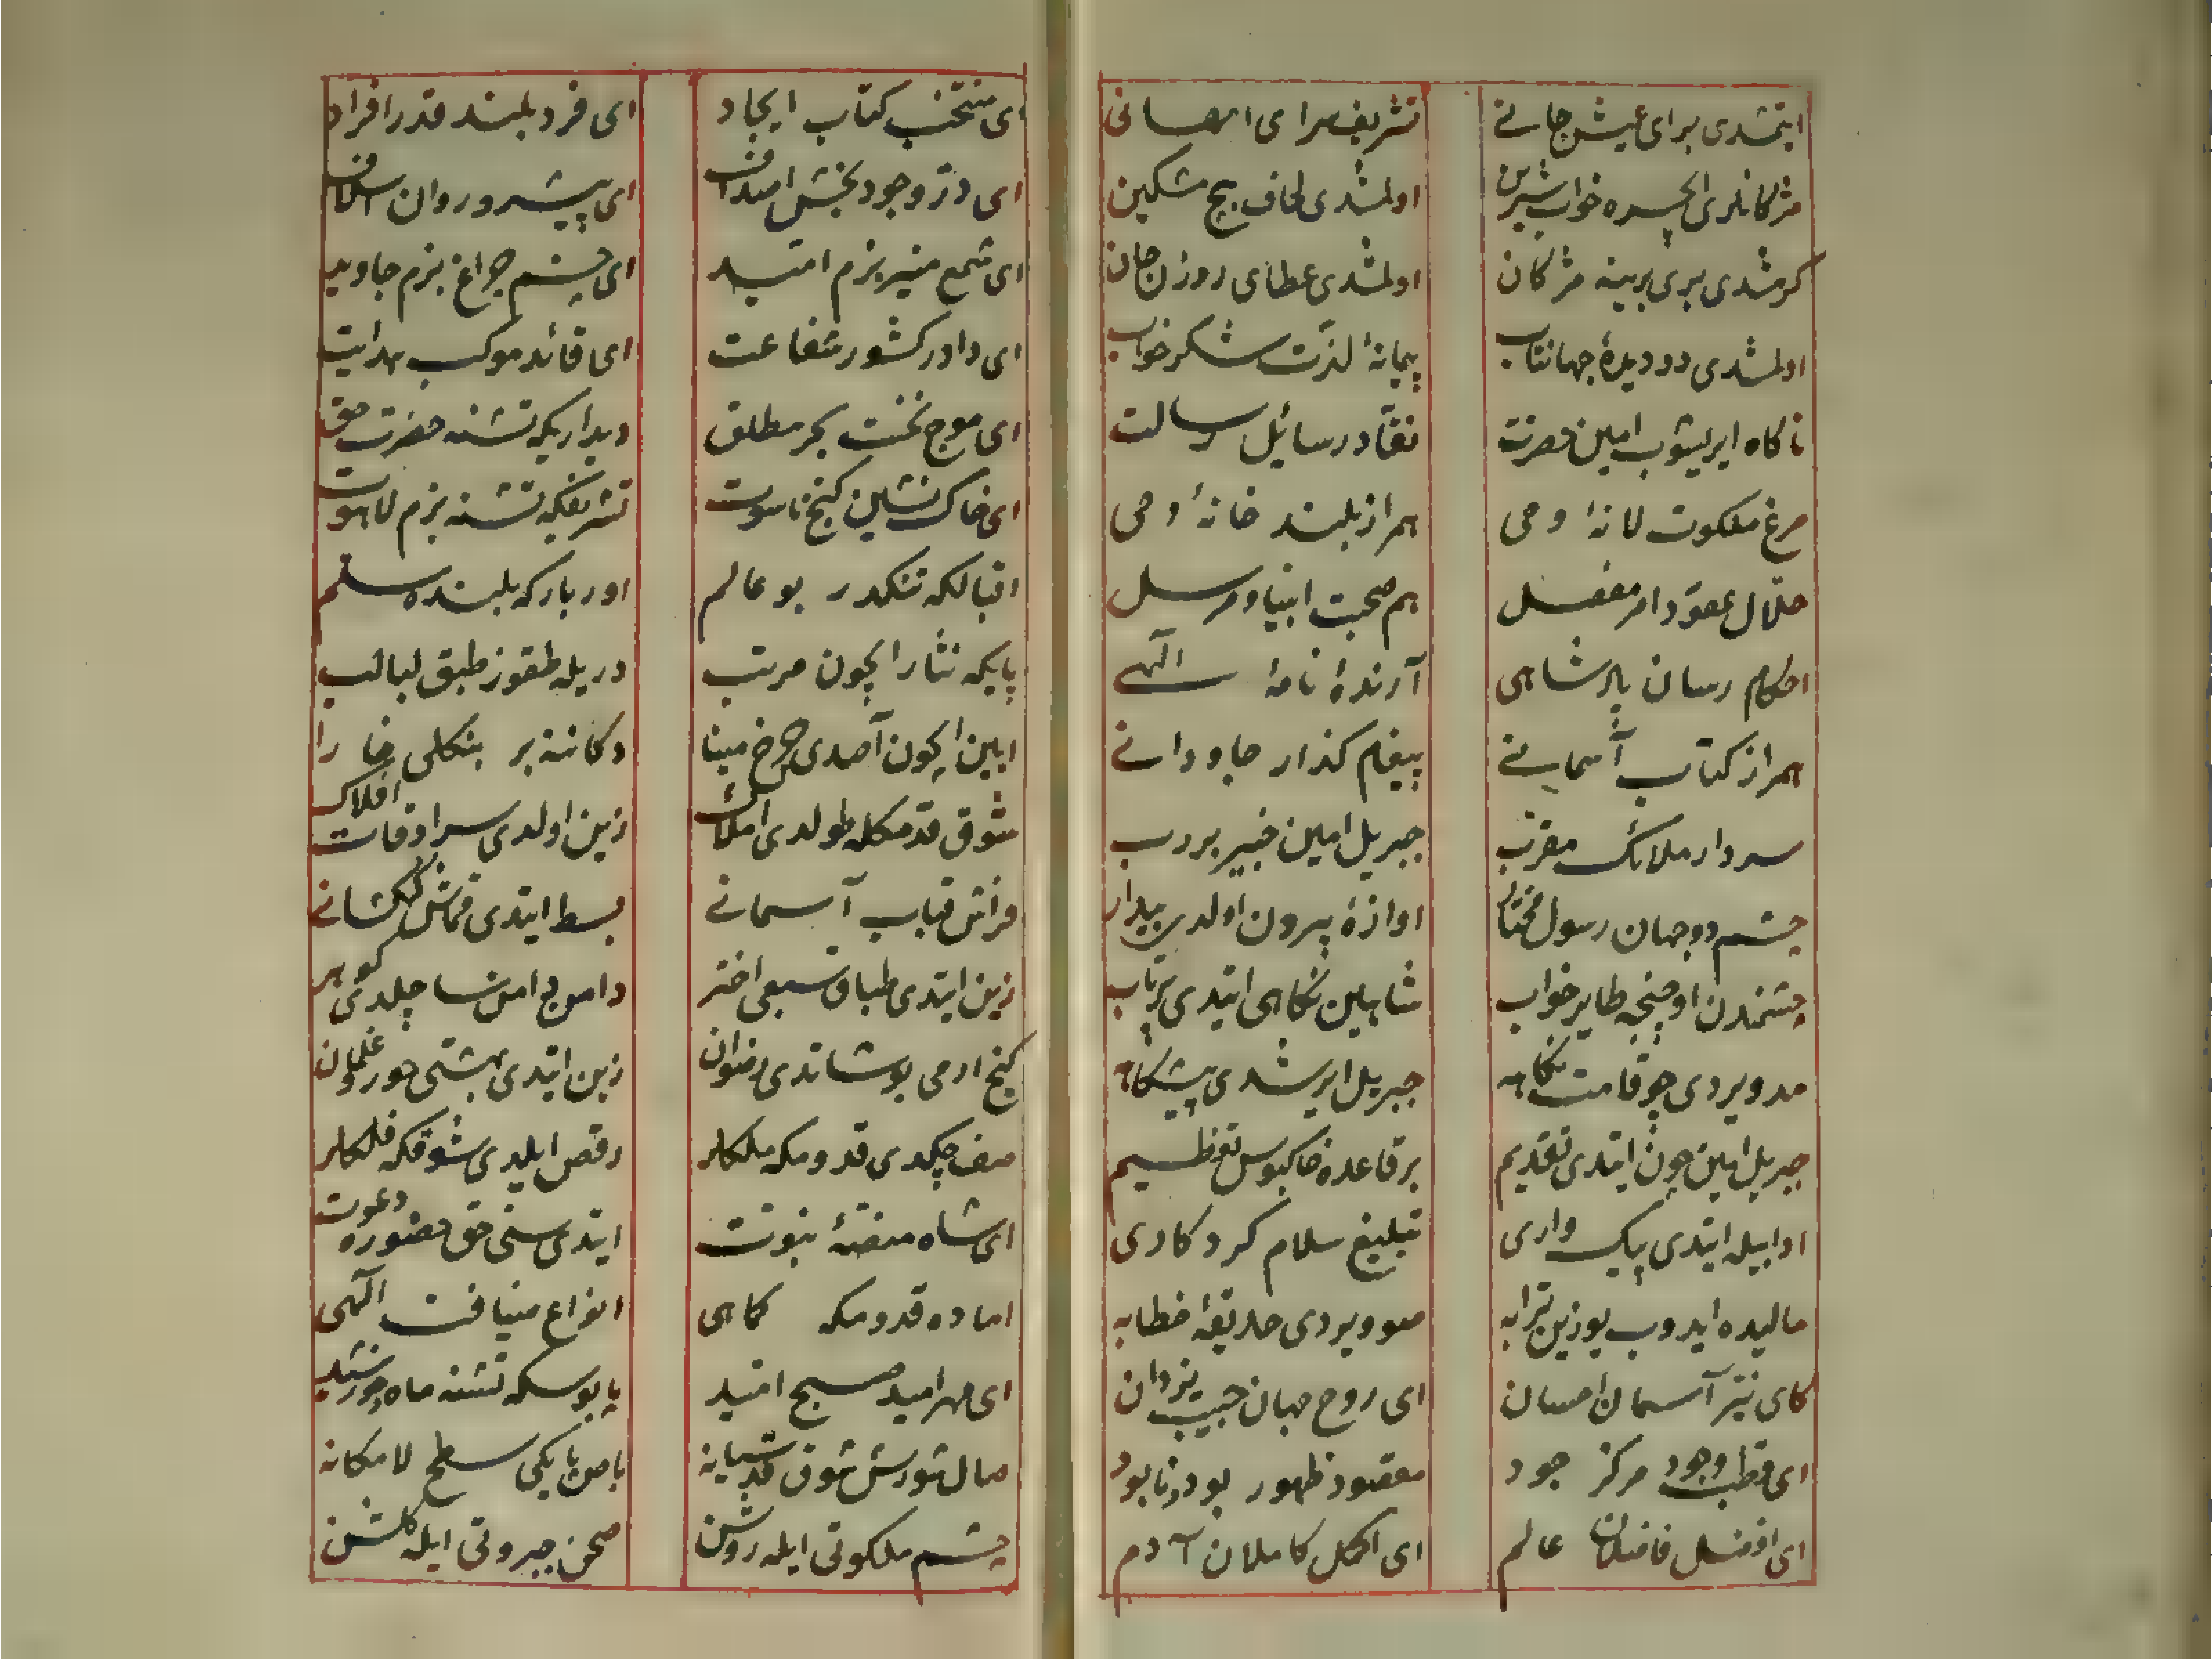 ایتشدی برای عیش جانے
تشریف سرای امهانی
مژکانلری اچره خواب شیرین
اولمشدی لحاف بیج مشکین
کرمشدی بری برینه مژکان
اولمشدی عطای روزن جان
اولمشدی دو دیدهٔ جهانتاب
پیمانهٔ لذت شکر خواب
ناکاه ایریشوب امین حضرت
نقاد رسائل رسالت
مرغ ملکوت لانهٔ وحی
همراز بلند خانهٔ وحی
حلال عقود امر مفصل
هم صحبت انبیا و مرسل
احکام رسان پادشاهی
آرندهٔ نامهٔ الهی
همراز کتاب آسمانے
پیغام کذار جاودانے
سردار ملائک مقرب
جبریل امین خبیر بر رب
چشم دو جهان رسول مختار
اوازهٔ پرون اولدی بیدار
چشمندن اوچنجه طایر خواب
شاهین نکاهی ایتدی پرتاب
مد ویردی چو قامت نکاهه
جبریل ایرشدی پیشکاهه
جبریل امین چون ایتدی تقدیم
بر قاعده خاکبوس تعظیم
ادابیله ایتدی پیک واری
تبلیغ سلام کردکاری
مالیده ایدوب یوزین ترابه
ضو ویردی حدیقهٔ خطابه
کای نیر آسمان احسان
ای روح جهان حبیب یزدان
ای قطب وجود مرکز جود
مقصود ظهور بود و نابود
ای افضل فاضلان عالم
ای اکمل کاملان آدم
ای منتخب کتاب ایجاد
ای فرد بلند قدر افراد
ای در وجود بخش اصداف
ای پیشرو روان اسلاف
ای شمع منیر بزم امید
ای چشم چراغ بزم جاوید
ای داور کشور شفاعت
ای قائد موکب هدایت
ای موج نخست بحر مطلق
دیداریکه تشنه حضرت حق
ای خاک نشین کنج ناسوت
تشریفکه تشنه بزم لاهوت
اقبالکه تنکدر بو عالم
اور بارکه بلنده سلم
پایکه نثار ایچون مرتب
دریله طقوز طبق لبالب
ایین ایچون آصدی چرخ مینا
دکاننه بر بنکلی خارا
شوق قدمکله طولدی املاک
زین اولدی سرادقات افلاک
فراش قباب آسمانے
بسط ایتدی قماش کهکشانے
زین ایتدی طباق سبعی اختر
دامویج امن ساچلدی کوهر
کنج ارمی بوشاتدی رضوان
زین ایتدی بهشتی حور و غلمان
صف چکدی قدومکه ملکلر
رقص ایلدی شوقکه فلکلر
ای شاه منصهٔ نبوت
ایتدی سنی حق حضوره دعوت
اماده قدومکه کماهی
انواع ضیافت الهی
ای مهر امید صبح امید
پابوسکه تشنه ماه و خورشید
صال شورش شوق قدسیانه
باص پایکی سطح لامکانه
چشم ملکوتی ایله روشن
صحن جبروتی ایله کلشن